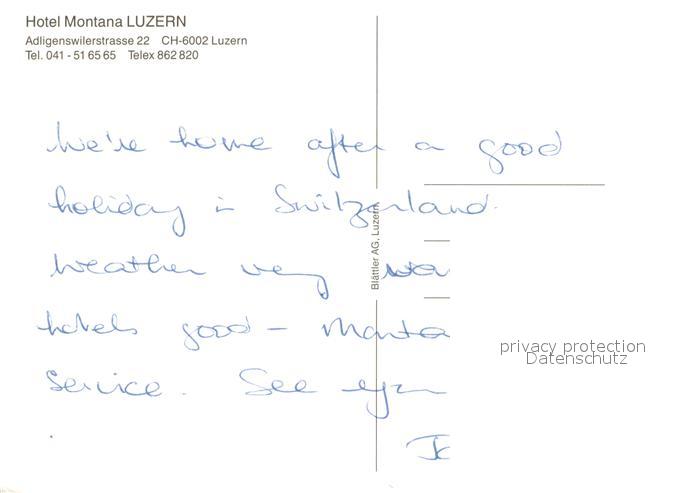 Hotel Montana LUZERN
Adligenswilerstrasse 22 CH-6002 Luzern
Tel. 041 - 51 65 65 Telex 862 820
We're home after a good
holiday in Switzerland.
Weather very
hotels good –
Service. See
Blättler AG, Luzern
privacy protection
Datenschutz